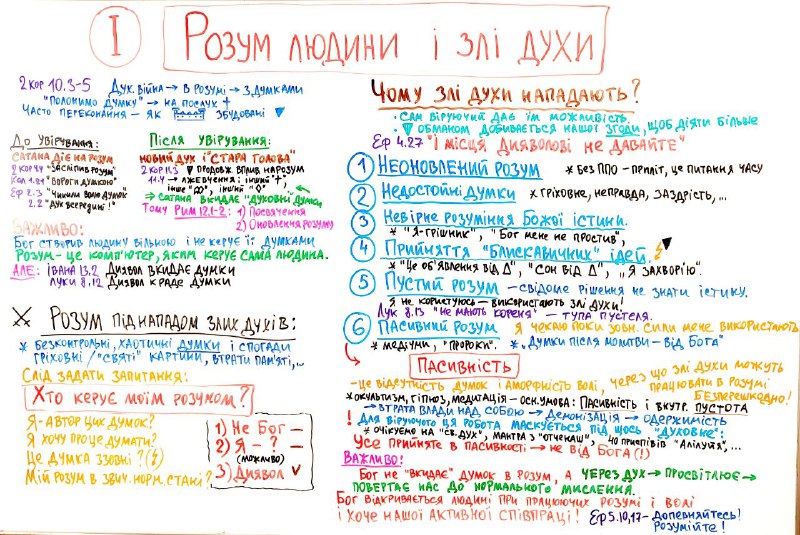 I
Розум людини і злі духи
2 Кор 10.3-5 Дух. війна → в розумі → з думками
"Полонимо думку" → на послух †
Часто переконання – як збудовані
До увірування:
Сатана діє на розум
2 Кор 4.4 "Засліпив розум"
Кол. 1.21 "Вороги думкою"
Еф 2.3 "Чинили волю думок"
2.2 "Дух всередині!"
Після увірування:
Новий дух і "стара голова"
2 Кор 11.3 продовж. вплив на розум
11.4 → лжевчення: інший "†",
інше "До", інший "О"
⇒ Сатана вкидає "духовні" думки
Тому Рим 12.1-2: 1) Посвячення
2) Оновлення розуму
Важливо:
Бог створив людину вільною і не керує її думками
Розум – це комп'ютер, яким керує сама людина.
Але: Івана 13.2 Диявол вкидає думки
Луки 8.12 Диявол краде думки
Розум під нападом злих духів:
* Безконтрольні, хаотичні думки і спогади
гріховні / "святі" картини, втрати пам'яті,..
Слід задати запитання:
Хто керує моїм розумом?
Я – автор цих думок?
Я хочу про це думати?
Це думка ззовні? (⚡)
Мій розум в звич. норм. стані?
1) Не Бог –
2) Я – ? –
(можливо)
3) Диявол ✓
Чому злі духи нападають?
• Сам віруючий дає їм можливість.
• ▼ обманом добивається нашої згоди, щоб діяти більше
Еф 4.27 "І місця дияволові не давайте"
1 Неоновлений розум * Без ППО – приліт, це питання часу
2 Недостойні думки * гріховне, неправда, заздрість,...
3 Невірне розуміння Божої істини.
* "Я – грішник", "Бог мене не простив",
4 Прийняття "блискавичних" ідей. ⚡▼
* "Це об'явлення від Δ", "Сон від Δ", "Я захворію".
5 Пустий розум – свідоме рішення не знати істину.
Я не користуюсь – використають злі духи!
Лук 8.13 "Не мають кореня" – тупа пустеля.
6 Пасивний розум Я чекаю поки зовн. сили мене використають
* медіуми, "пророки". * "Думки після молитви – від Бога"
Пасивність
– це відсутність думок і аморфність волі, через що злі духи можуть
працювати в розумі
безперешкодно!
* окультизм, гіпноз, медитація – осн. умова: пасивність і внутр. пустота
→ втрата влади над собою → демонізація → одержимість
! Для віруючого ця робота маскується під щось "духовне":
* очікуємо на "св. дух", мантра з "отченаш", 40 приспівів "Алілуя",...
Усе прийняте в пасивності → не від Бога (!)
Важливо:
Бог не "вкидає" думок в розум, а через дух → просвітлює →
повертає нас до нормального мислення.
Бог відкривається людині при працюючих розумі і волі
і хоче нашої активної співпраці! Еф 5.10,17 – Допевняйтесь!
Розумійте!